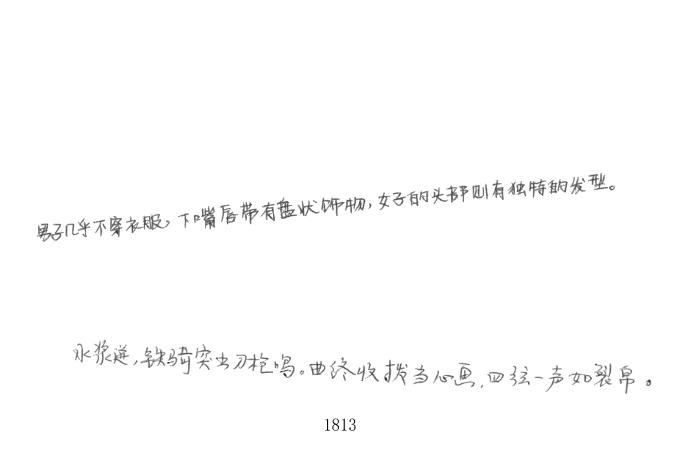 男子几乎不穿衣服，下嘴唇带有盘状饰物，女子的头部则有独特的发型。
水浆迸，铁骑突出刀枪鸣。曲终收拨当心画，四弦一声如裂帛。
1813